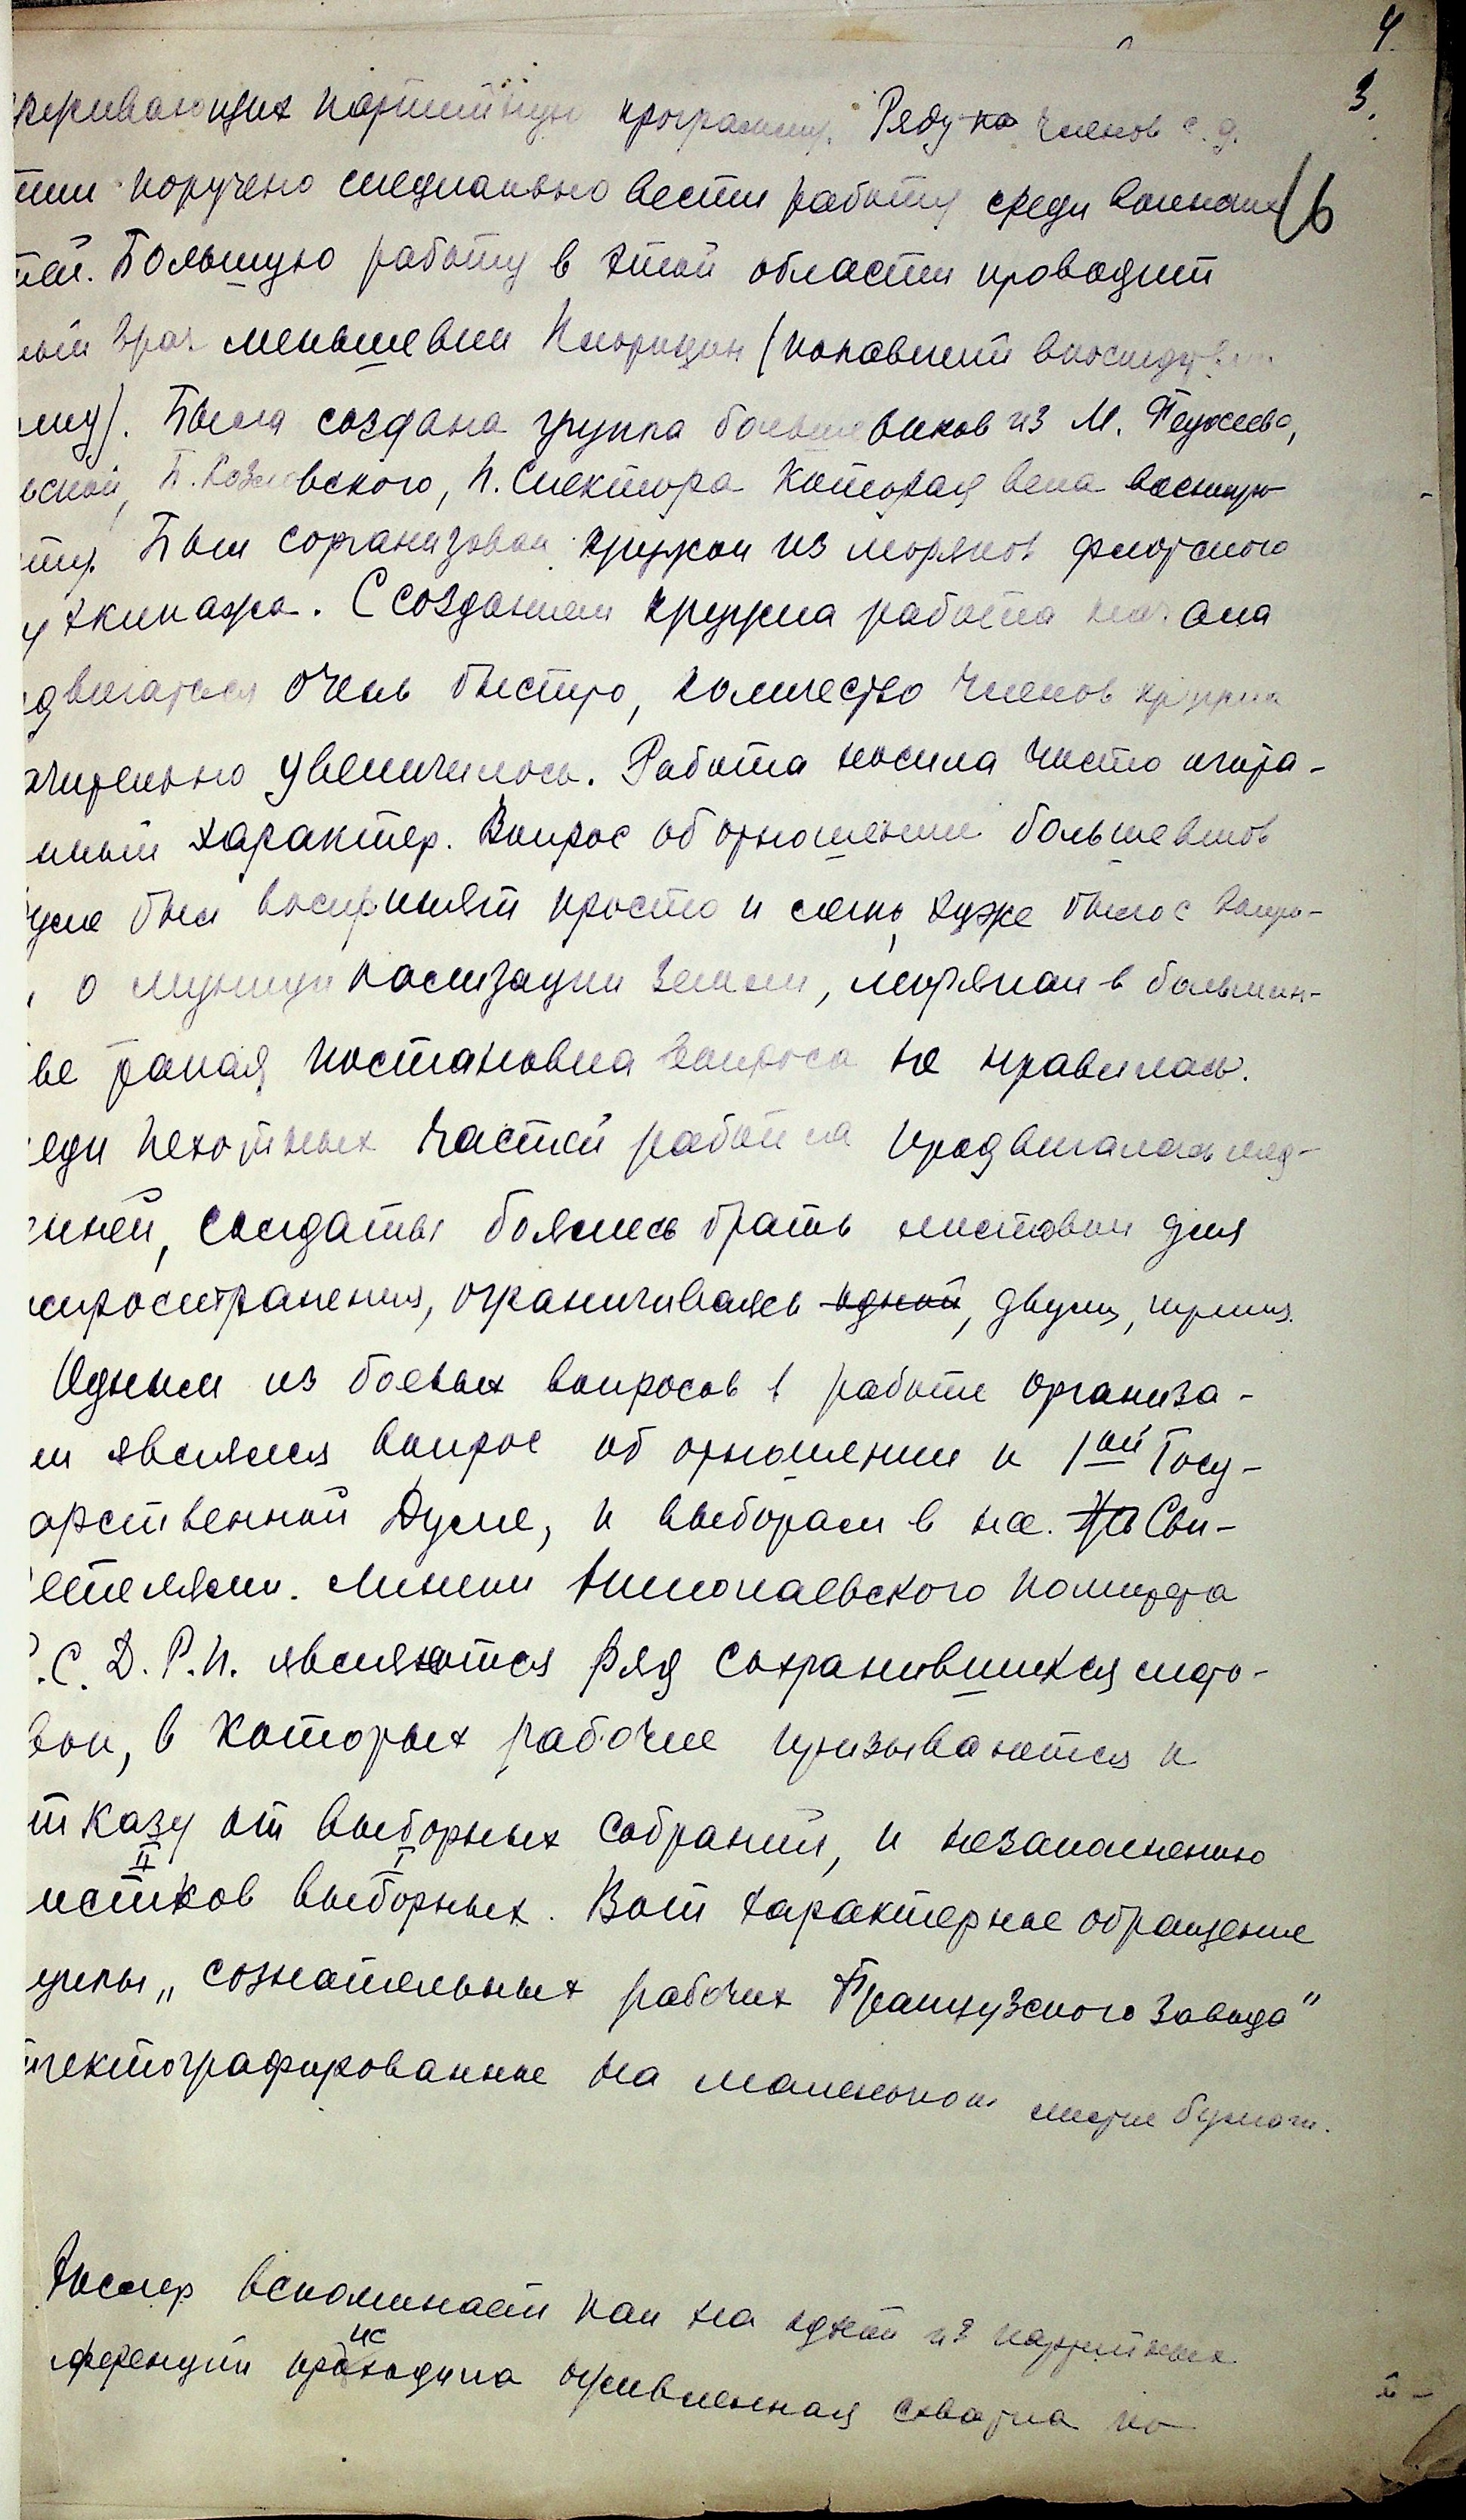 4.
3.
рживающих партийную программу. Ряду на членов с. д.
тии поручено специально вести работу среди военных
тей. Большую работу в этой области проводит
ный врач меньшевик (попавший впоследствии
му). Была создана группа большевиков из М.
ьской, П. Козловского, П. Спектора которая вела
ту. Был сорганизован кружок из моряков флотского
у экипажа. С созданием кружка работа начала
двигаться очень быстро, количество членов кружка
ачительно увеличилось. Работа носила чисто агита-
нный характер. Вопрос об отношении большевиков
уме был воспринят просто и легко, хуже было с вопро-
, о муниципализации земли, морякам в большин-
ве такая постановка вопроса не нравилась.
еди пехотных частей работа продвигалась мед-
нней, солдаты боялись брать листовки для
спространения, ограничиваясь одной, двумя, тремя.
Одним из боевых вопросов в работе организа-
и являлся вопрос об отношении к 1ой Госу-
арственной Думе, к выборам в нее. Сви-
етелями линии Николаевского комитета
Р.С.Д.Р.П. являются ряд сохранившихся листо-
вок, в которых рабочие призываются к
тказу от выборных собраний, к незаполнению
II I
истков выборных. Вот характерное обращение
уппы „сознательных рабочих Французского завода"
гектографированные на маленьком листке бумаги.
вспоминает как на одной из партийных
ис
ференций проходила оживленная схватка по